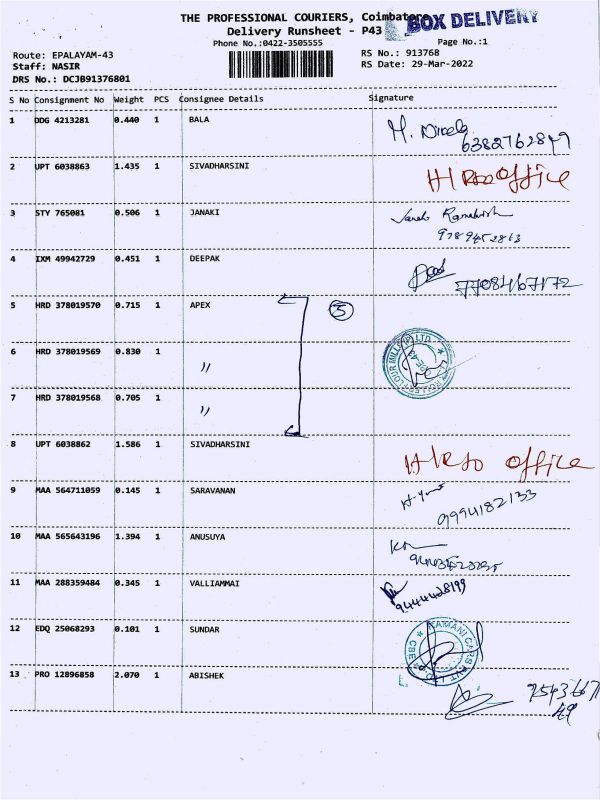 THE PROFESSIONAL COURIERS, Coimbatore
BOX DELIVERY
Delivery Runsheet - P43
Phone No.:0422-3505555
Page No.:1
Route: EPALAYAM-43
RS No.: 913768
Staff: NASIR
RS Date: 29-Mar-2022
DRS No.: DCJB91376801
S No Consignment No Weight PCS Consignee Details Signature
1 DDG 4213281 0.440 1 BALA
2 UPT 6038863 1.435 1 SIVADHARSINI office
3 STY 765081 0.506 1 JANAKI
4 IXM 49942729 0.451 1 DEEPAK
5 HRD 378019570 0.715 1 APEX 3
6 HRD 378019569 0.830 1 〃
7 HRD 378019568 0.705 1 〃
8 UPT 6038862 1.586 1 SIVADHARSINI office
9 MAA 564711059 0.145 1 SARAVANAN
9994182133
10 MAA 565643196 1.394 1 ANUSUYA
11 MAA 288359484 0.345 1 VALLIAMMAI
9444428199
12 EDQ 25068293 0.101 1 SUNDAR
13 PRO 12896858 2.070 1 ABISHEK